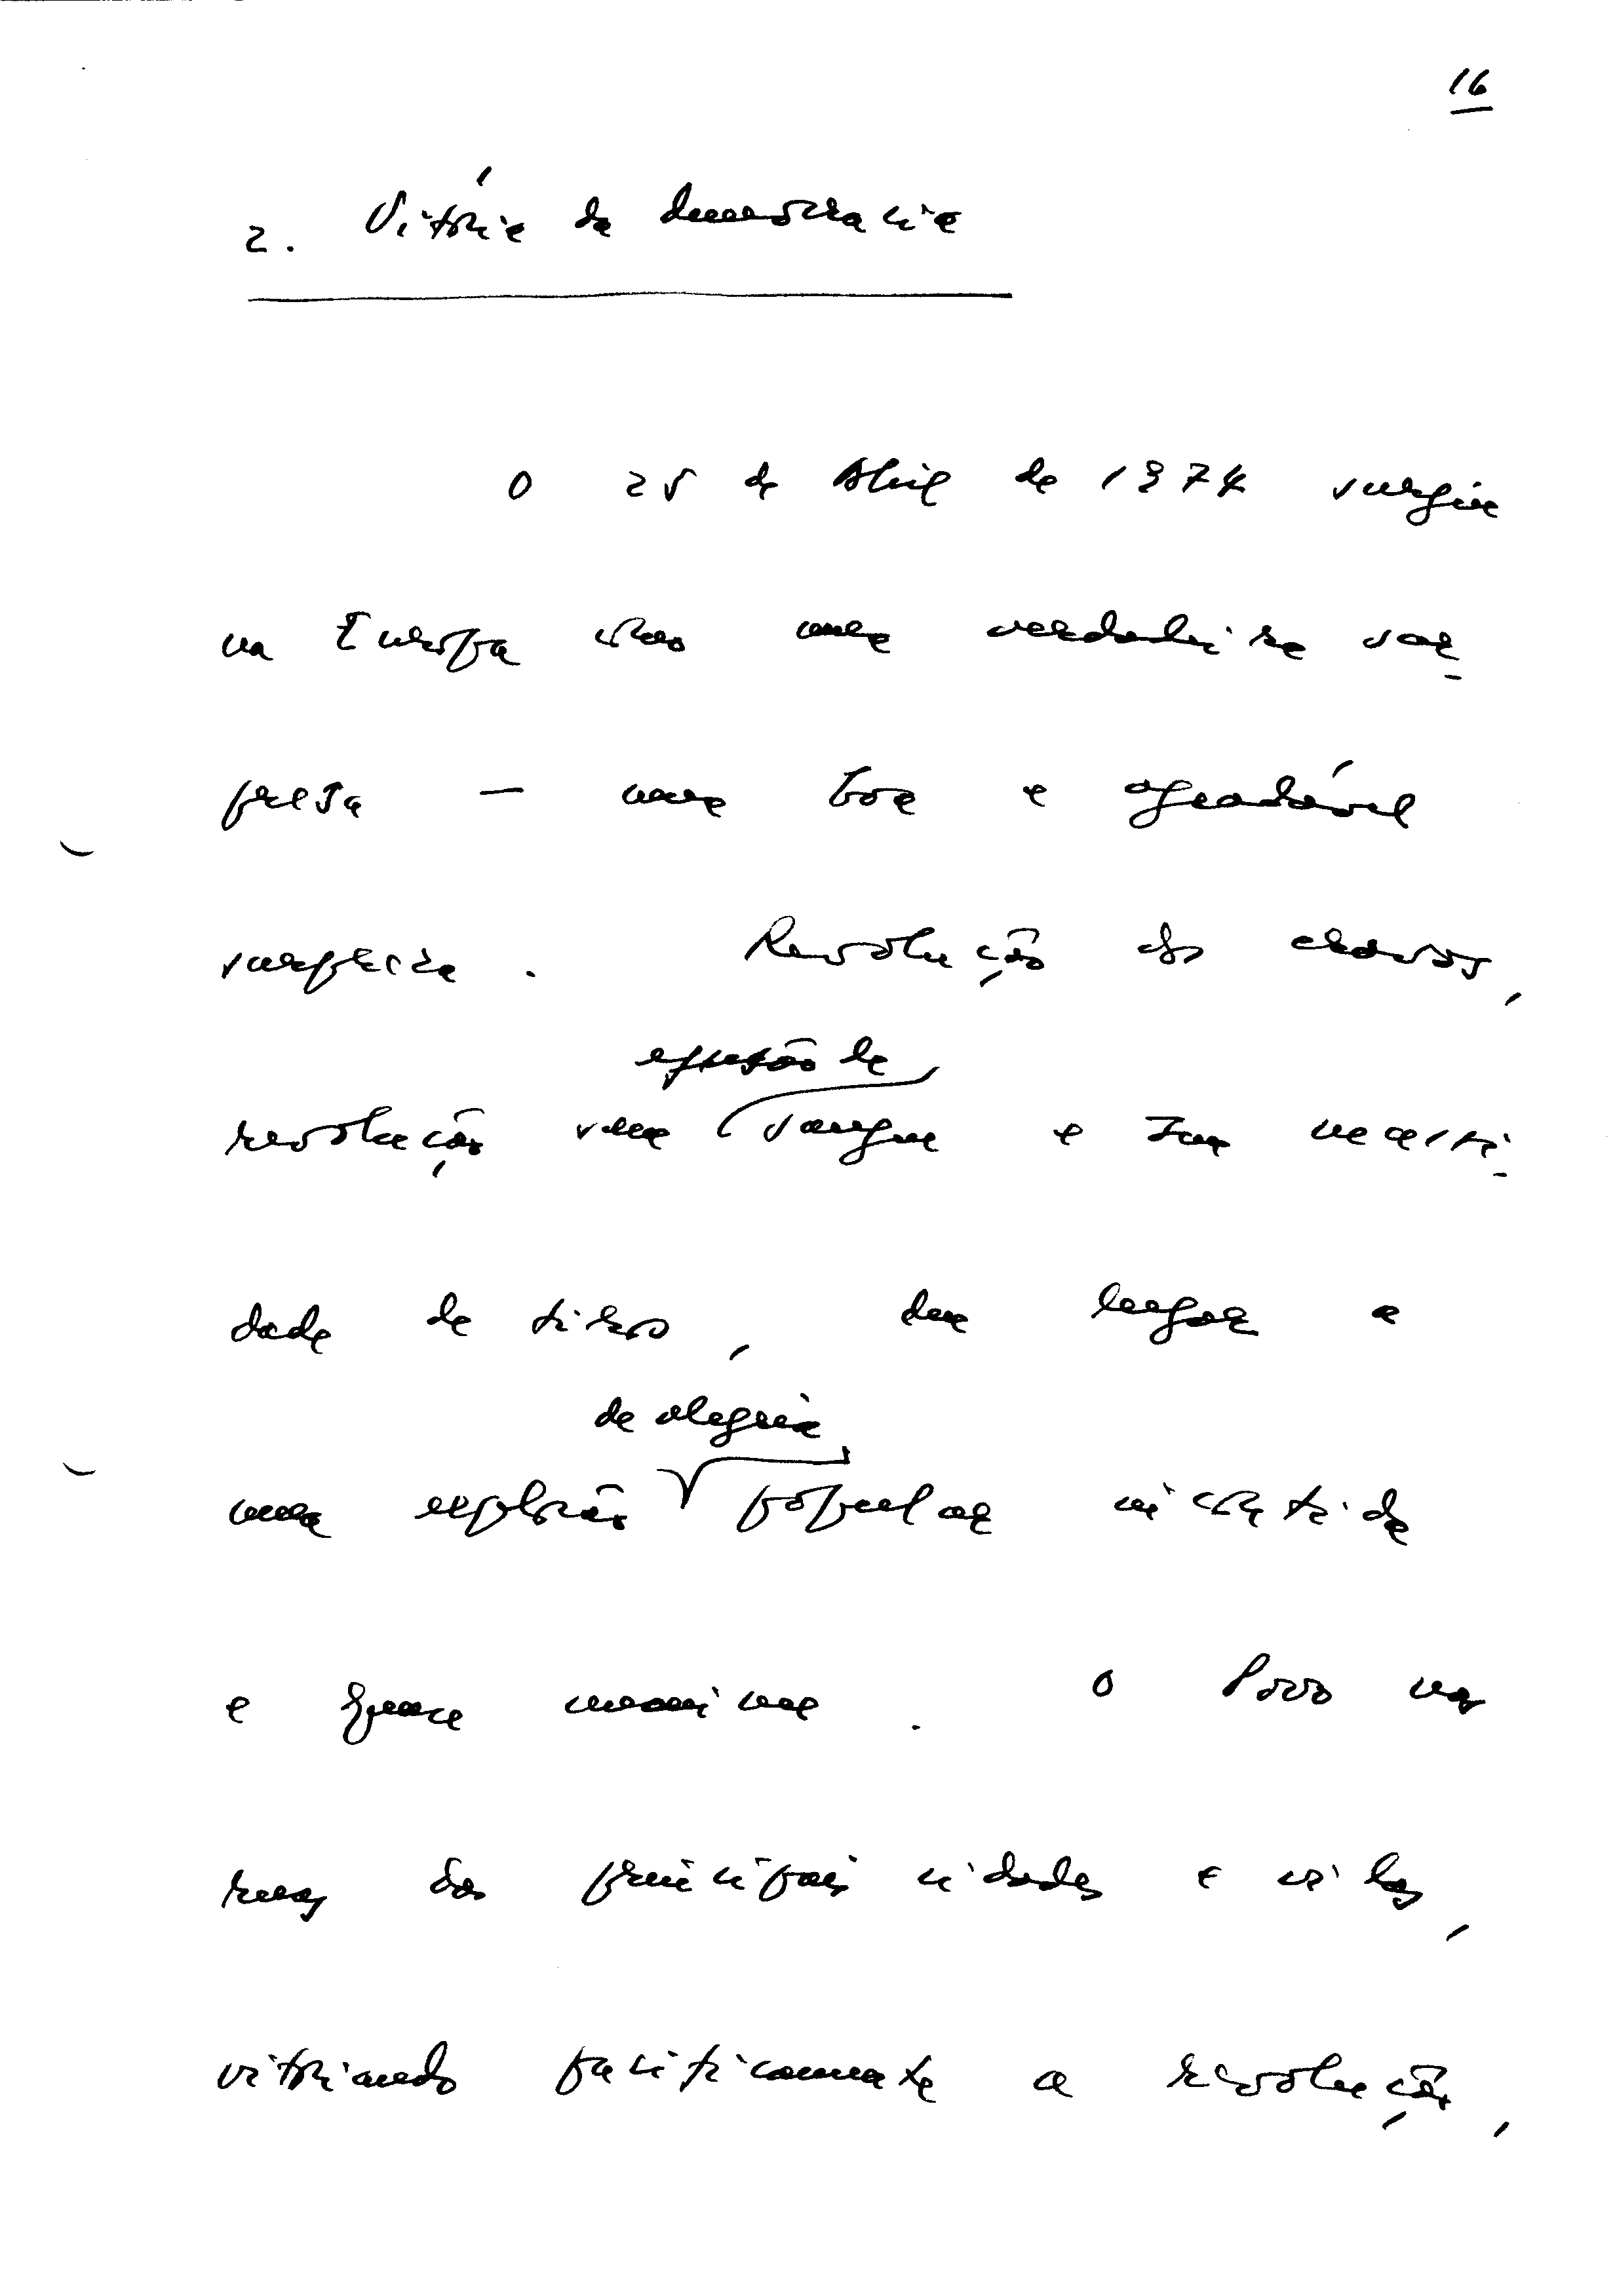 16
2. Vitória da democracia
O 25 de Abril de 1974 surgiu
na Europa como uma verdadeira sur-
presa — uma boa e agradável
surpresa. Revolução dos cravos,
efusão de
revolução sem sangue e sem necessi-
dade de tiros, deu lugar a
de alegria
uma explosão popular incontida
e quase unanime. O Povo nas
ruas das principais cidades e vilas,
vitoriando pacificamente a revolução,